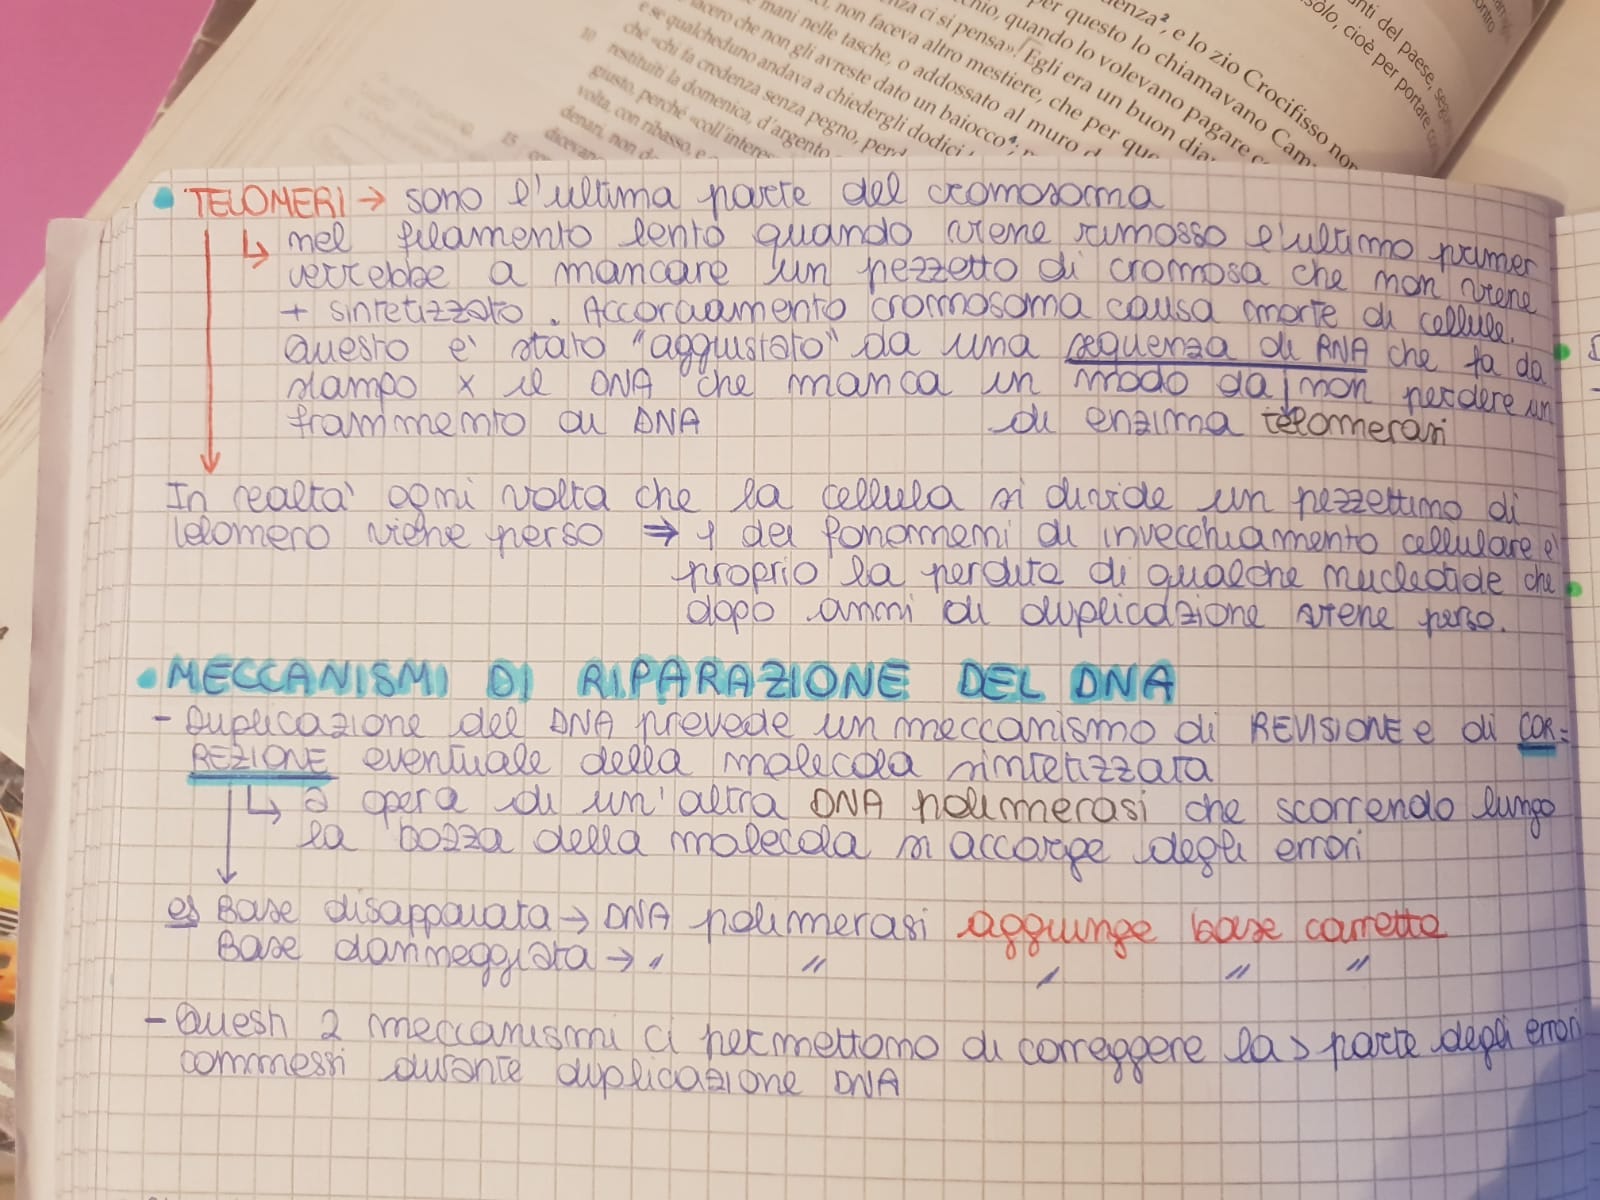 uenza², e lo zio Crocifisso non
per questo lo chiamavano Cam
chio, quando lo volevano pagare c
nza ci si pensa». Egli era un buon dia
ci, non faceva altro mestiere, che per que
mani nelle tasche, o addossato al muro d
che non gli avreste dato un baiocco⁴;
e se qualcheduno andava a chiedergli dodici
ché «chi fa credenza senza pegno, perd
10 restituiti la domenica, d'argento
giusto, perché «coll'interes
volta, con ribasso, e
denari, non d
15
nti del paese, seg
sòlo, cioè per portare co
• TELOMERI → sono l'ultima parte del cromosoma
↳ nel filamento lento quando viene rimosso l'ultimo primer
verrebbe a mancare un pezzetto di cromosa che non viene
+ sintetizzato. Accorciamento cromosoma causa morte di cellule.
Questo e' stato "aggiustato" da una sequenza di RNA che fa da
stampo x il DNA che manca in modo da non perdere un
frammento di DNA di enzima telomerasi
In realta' ogni volta che la cellula si divide un pezzettino di
telomero viene perso ⇒ 1 dei fonomeni di invecchiamento cellulare e'
proprio la perdita di qualche nucleotide che
dopo anni di duplicazione viene perso.
• MECCANISMI DI RIPARAZIONE DEL DNA
- Duplicazione del DNA prevede un meccanismo di REVISIONE e di COR=
REZIONE eventuale della molecola sintetizzata
↳ a opera di un'altra DNA polimerasi che scorrendo lungo
la bozza della molecola si accorge degli errori
es Base disappaiata → DNA polimerasi aggiunge base corretta
Base danneggiata → " " " " "
- Questi 2 meccanismi ci permettono di correggere la > parte degli errori
commessi durante duplicazione DNA